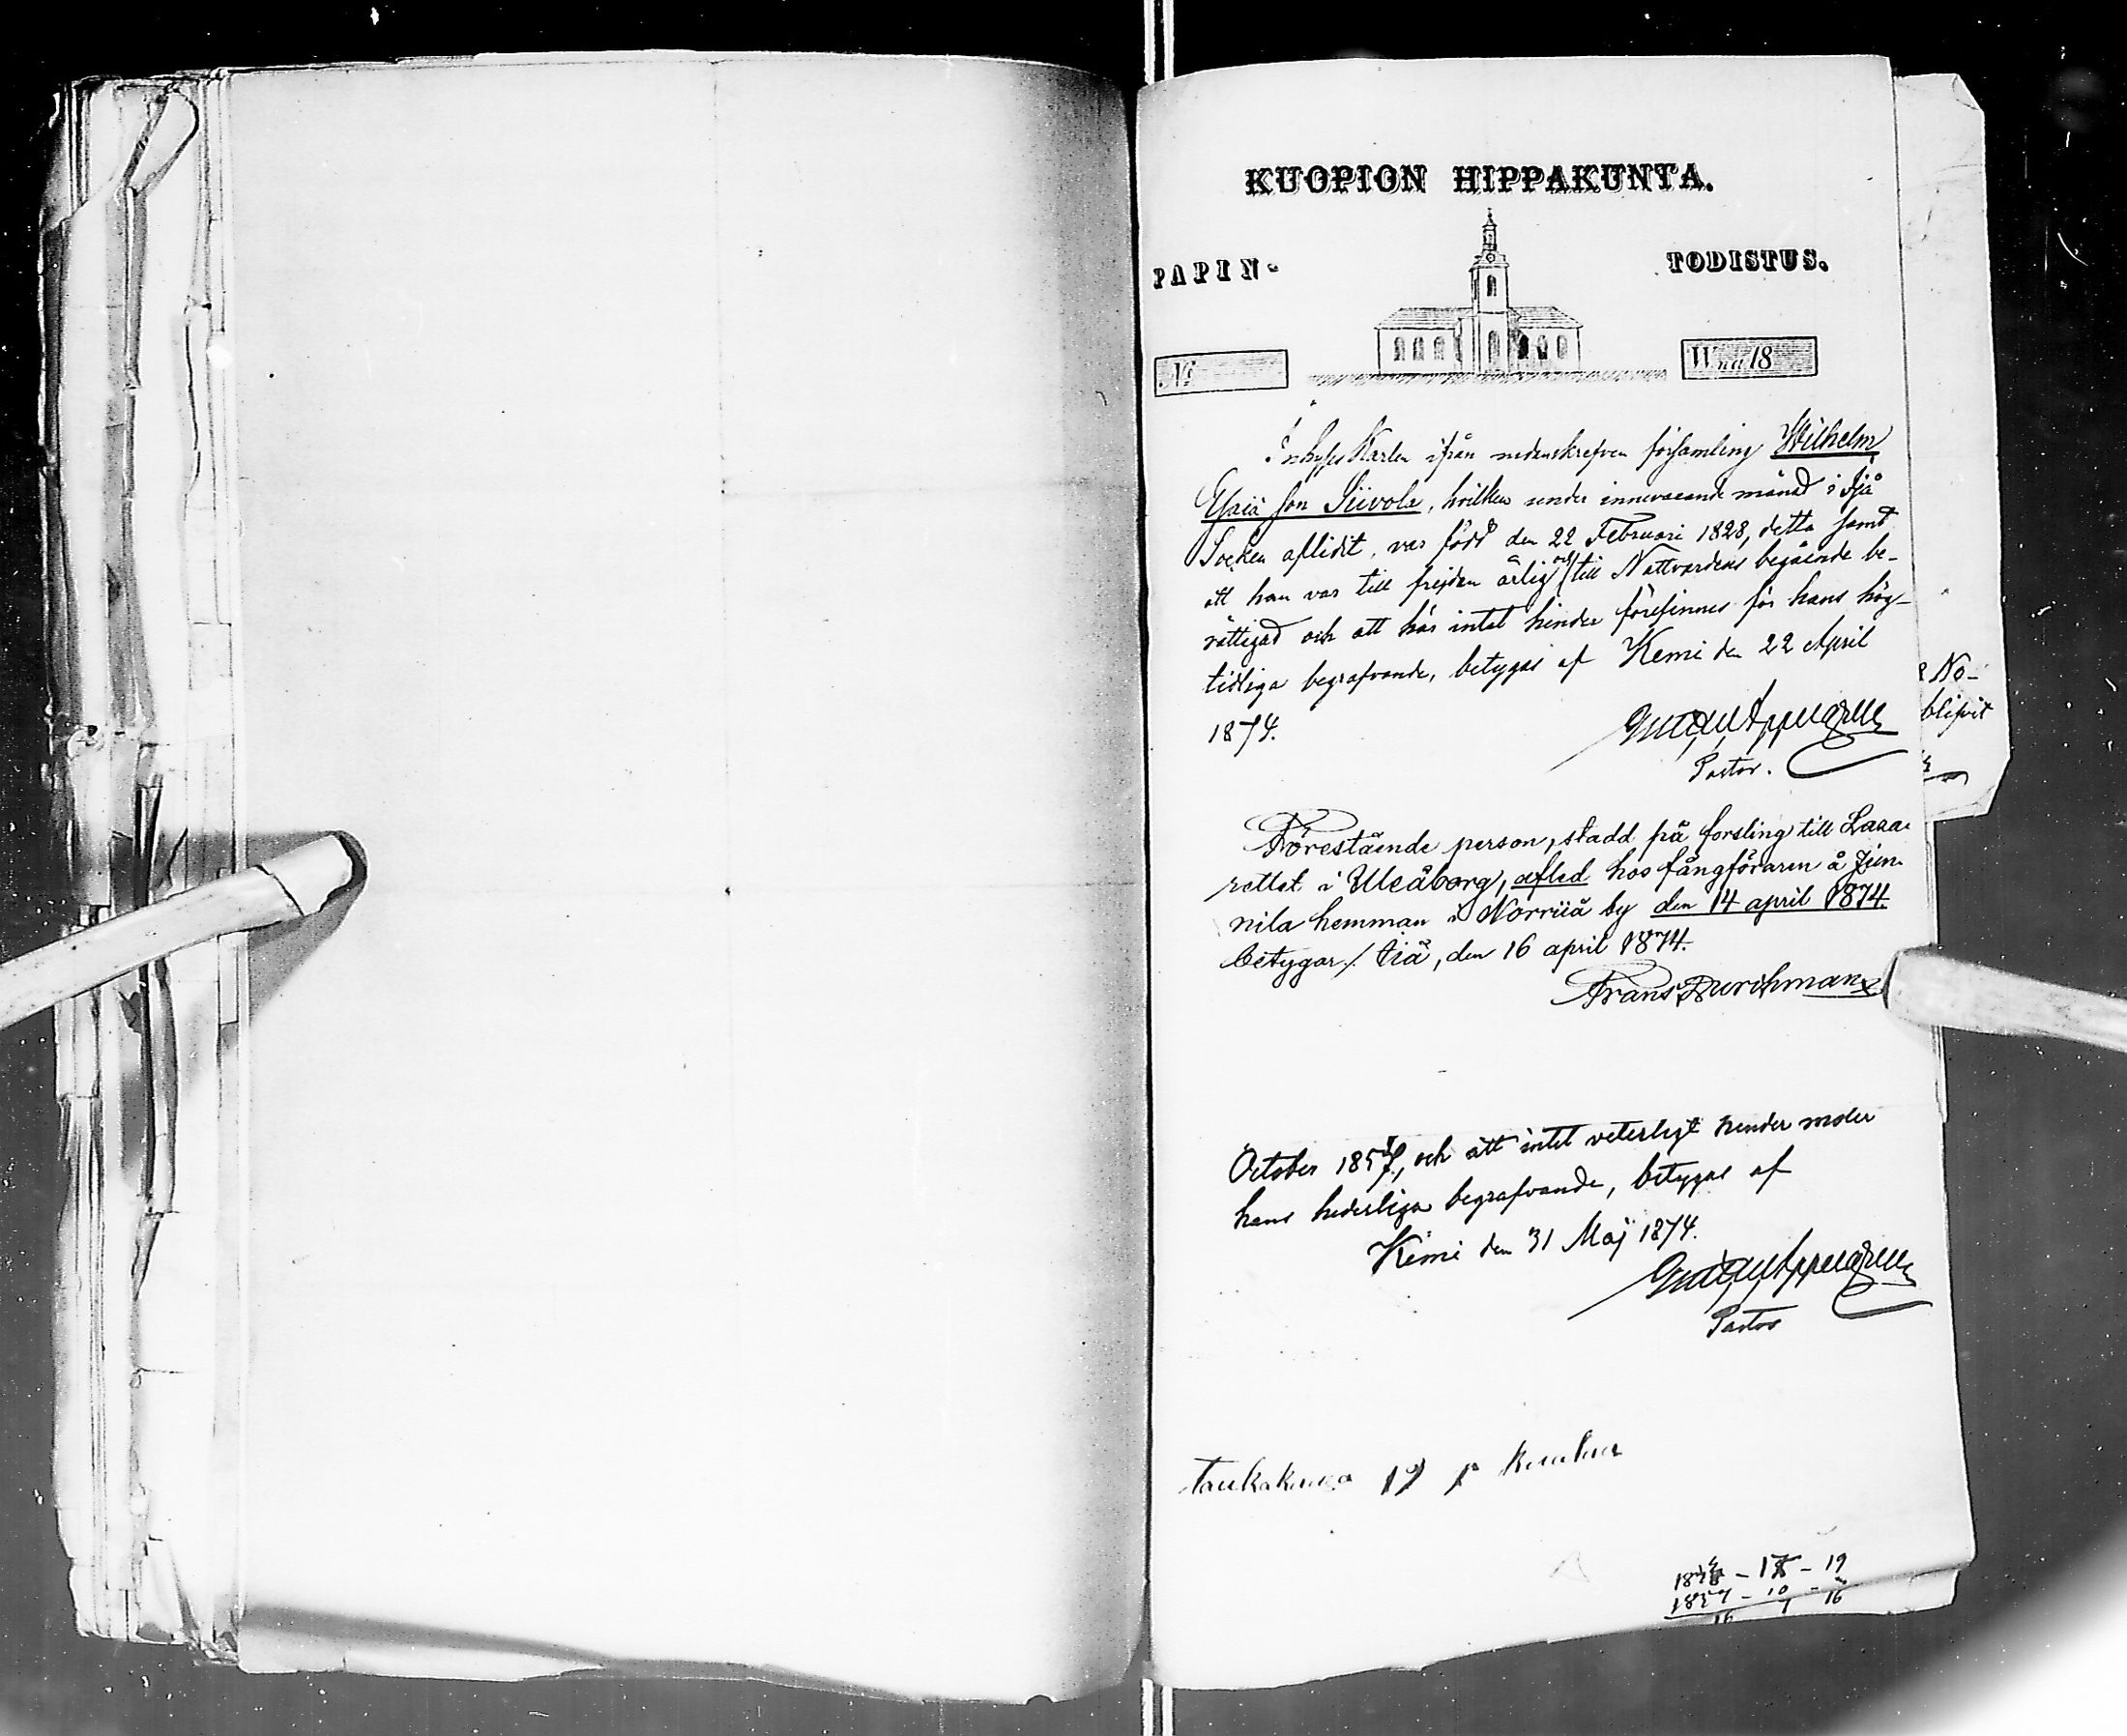 KUOPION HIPPAKUNTA.
PAPIN- TODISTUS.
N: Wna 18
Inhyses Karlen ifrån nedanskrefven församling Wilhelm
Esaia son Siivola, hvilken under innevarande månad i Ijå
Socken aflidit, var född den 22 Februari 1828, detta samt
att han var till frejden ärlig och till Nattvardens begående be-
rättigad och att här intet hinder förefinnes för hans hög-
tidliga begrafvande, betygas af Kemi den 22 April
1874.
Pastor.
Förestående person, stadd på forsling till Laza-
rettet i Uleåborg, afled hos fångföraren å Jun-
nila hemman i Norriiå by den 14 april 1874.
betygar / Iiå, den 16 april 1874.
Frans Durchman
№-
blifvit
October 1857, och att intet veterligt hinder möter
hans hederliga begrafvande, betygas af
Kemi den 31 Maj 1874.
Pastor
19 p
- 19
1857 - 10 - 16
16 7